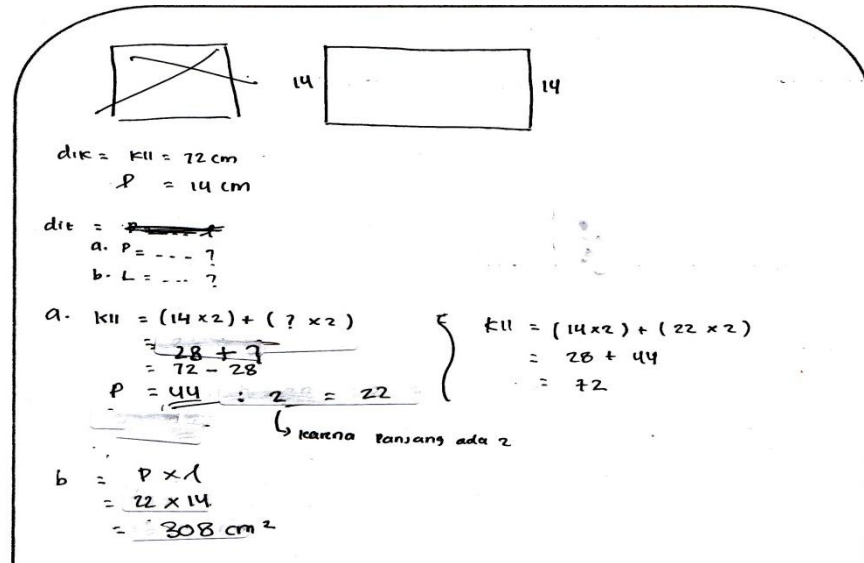 14 14
dik = kll = 72 cm
l = 14 cm
dit =
a. P = ---- ?
b. L = --- ?
a. kll = (14 x 2) + ( ? x 2 )
= 28 + ?
= 72 - 28
P = 44 : 2 = 22
↳ karena Panjang ada 2
kll = (14x2) + ( 22 x 2 )
= 28 + 44
= 72
b = P x l
= 22 x 14
= 308 cm²